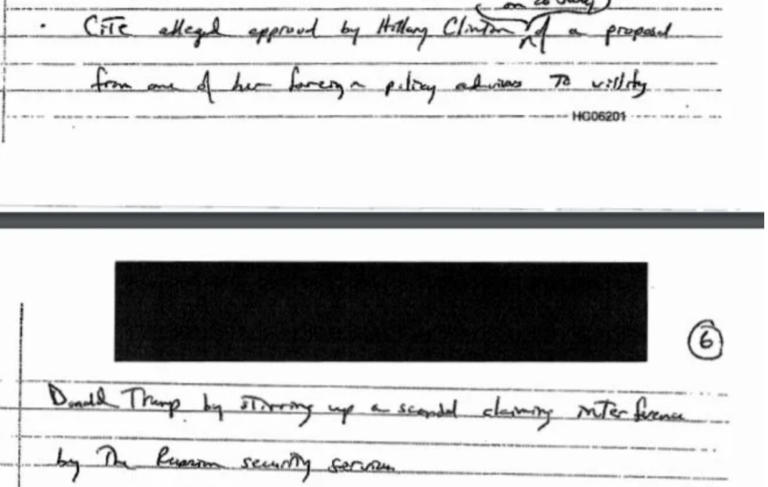 on 28 July
• CITE alleged approval by Hillary Clinton of a proposal
from one of her foreign policy advisors to villify
HG06201
6
Donald Trump by stirring up a scandal claiming interference
by the Russian security services